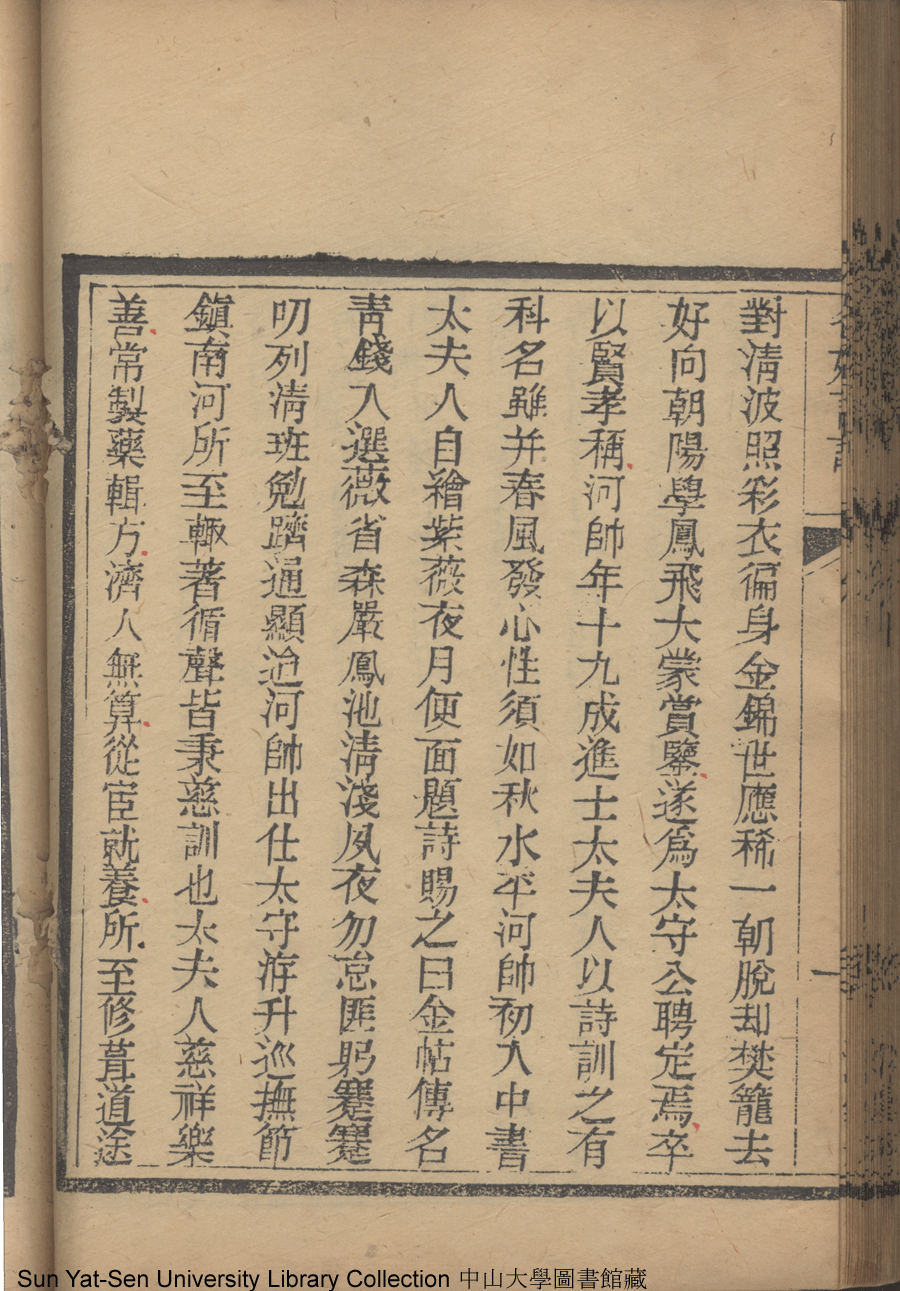 對清波照彩衣徧身金錦世應稀一朝脫却樊籠去
好向朝陽學鳳飛大蒙賞鑒遂爲太守公聘定焉卒
以賢孝稱河帥年十九成進士太夫人以詩訓之有
科名雖并春風發心性須如秋水平河帥初入中書
太夫人自繪紫薇夜月便面題詩賜之曰金帖傳名
靑錢入選薇省森嚴鳳池淸淺夙夜勿怠匪躬蹇蹇
叨列淸班勉躋通顯迨河帥出仕太守洊升巡撫節
鎭南河所至輙著循聲皆秉慈訓也太夫人慈祥樂
善常製藥輯方濟人無算從宦就養所至修葺道途
Sun Yat-Sen University Library Collection 中山大學圖書館藏